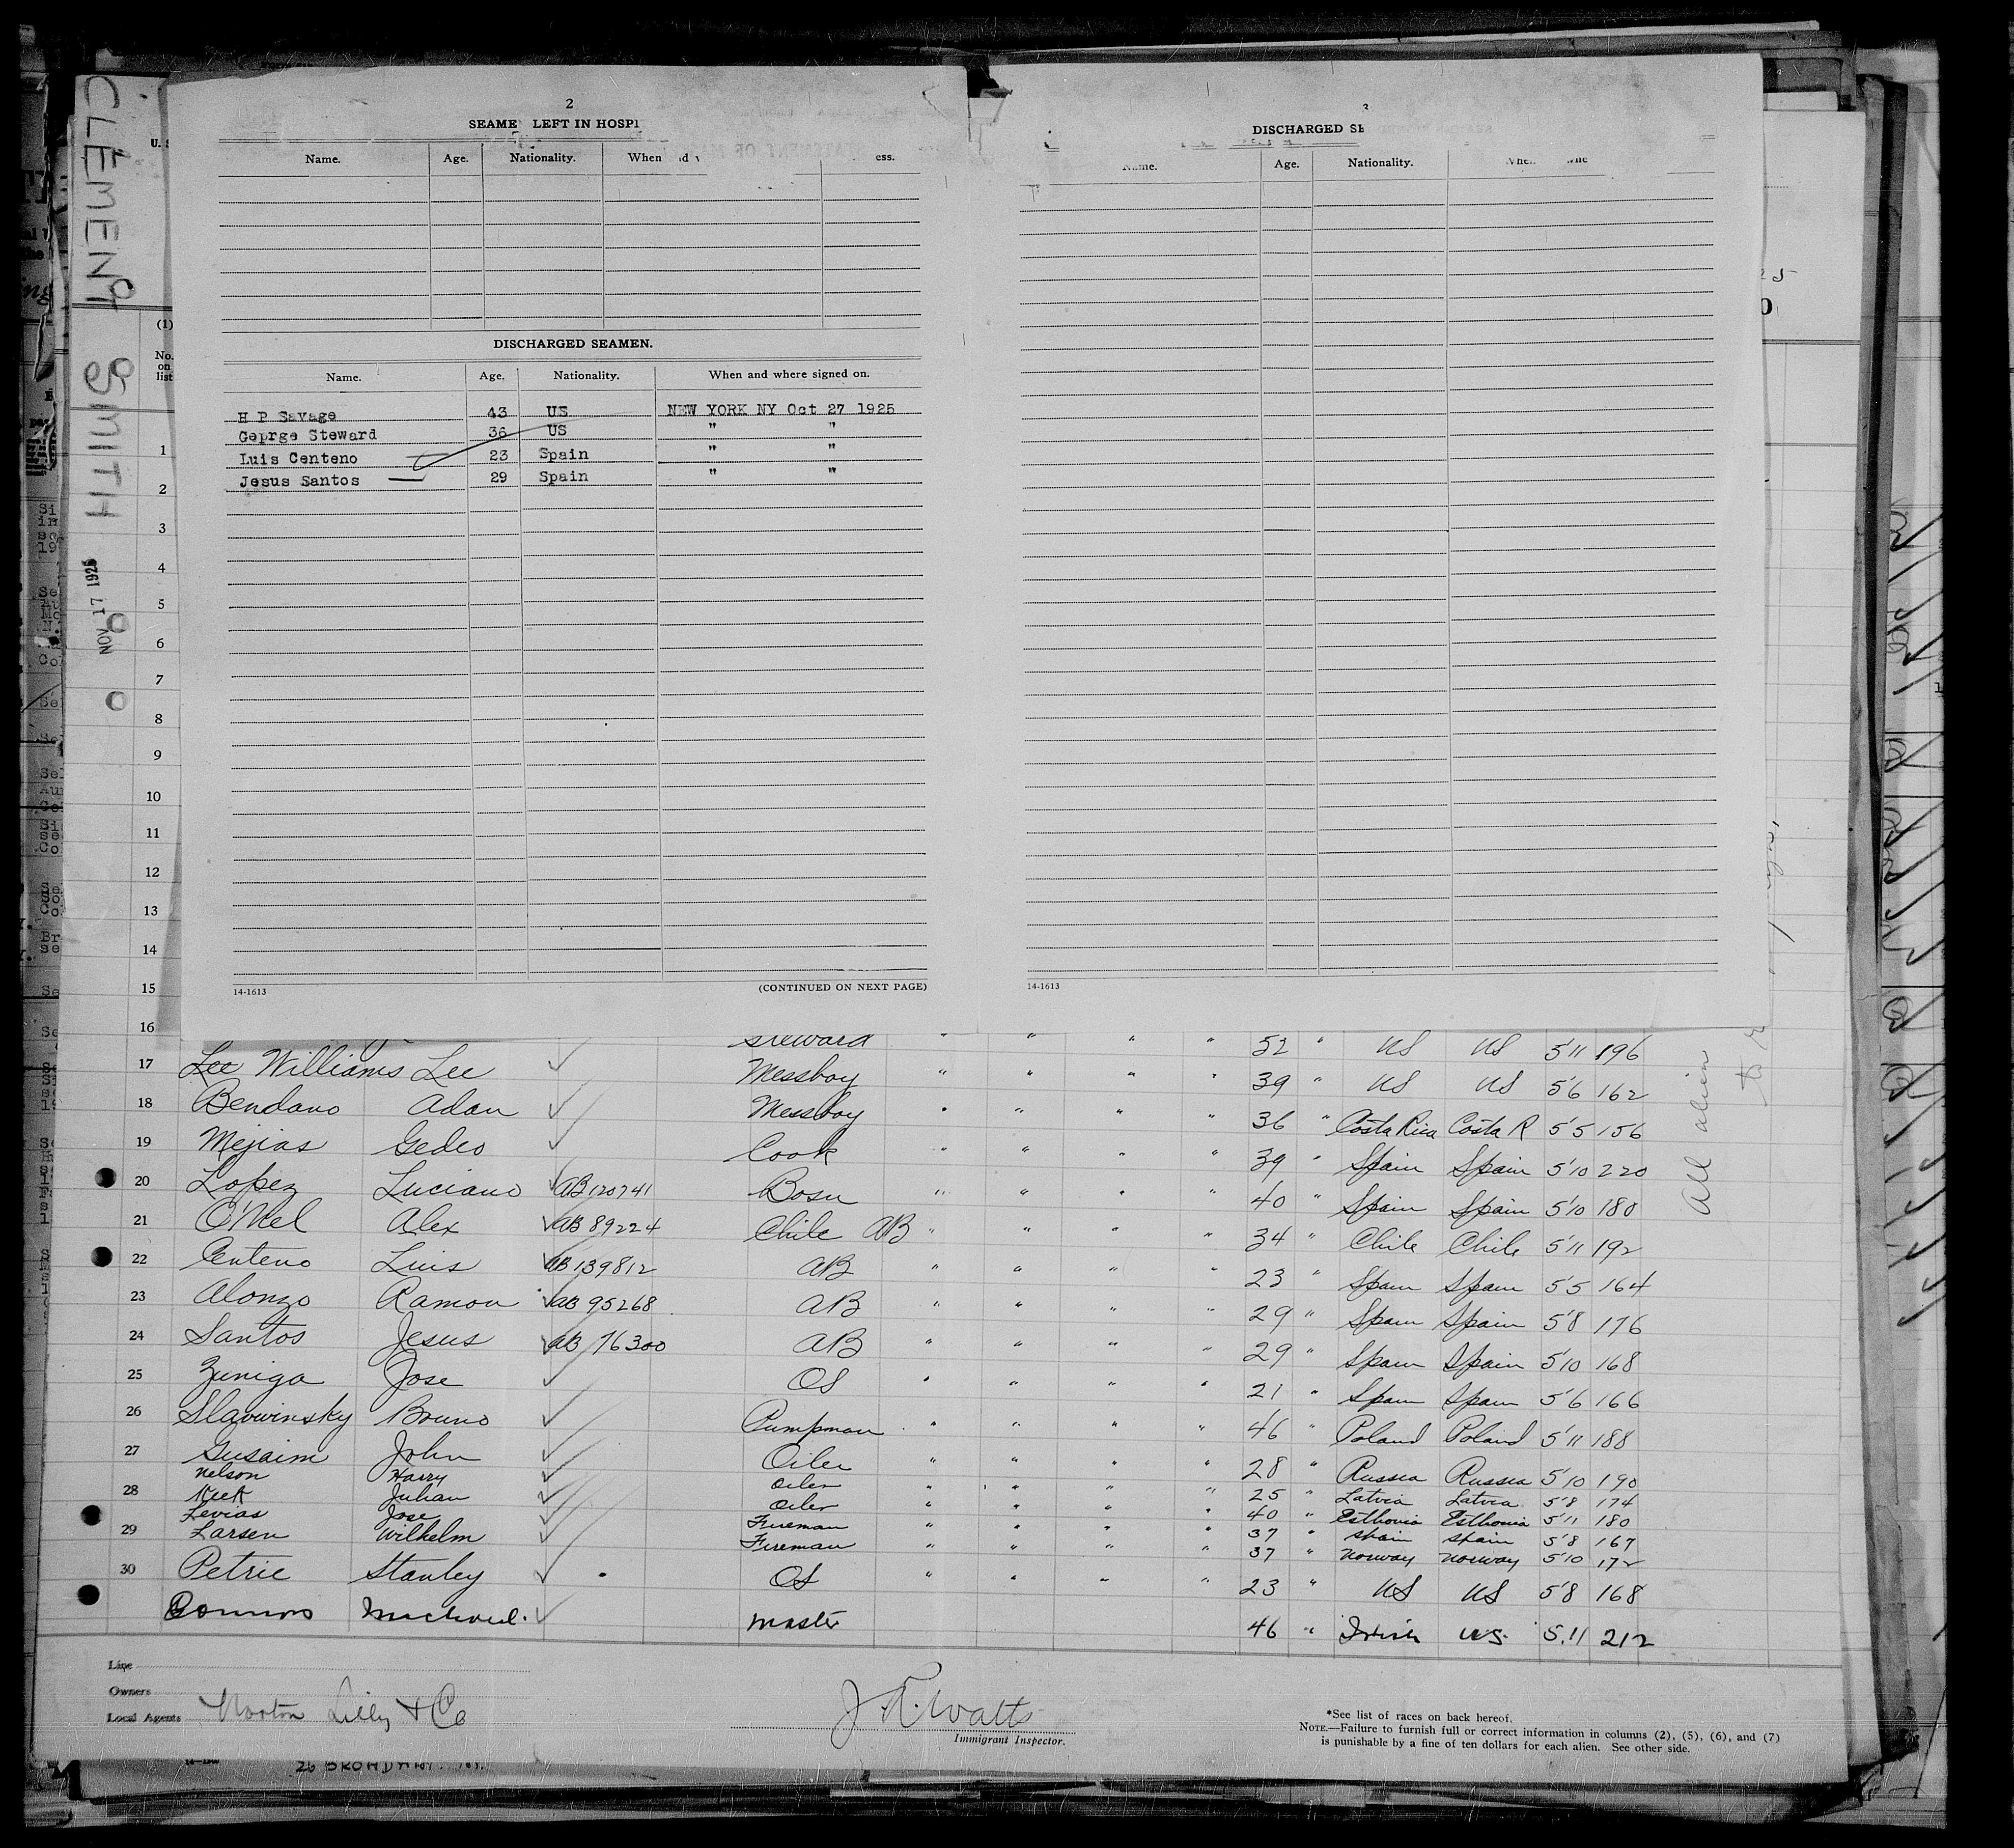 CLEMENT SMITH
NOV 17 1925
2
SEAME LEFT IN HOSPI
Name. Age. Nationality. When nd ess.
DISCHARGED SEAMEN.
Name. Age. Nationality. When and where signed on.
H P Savage 43 US NEW YORK NY Oct 27 1925
Geprge Steward 36 US " "
Luis Centeno 23 Spain " "
Jesus Santos 29 Spain " "
14-1613 (CONTINUED ON NEXT PAGE)
3
DISCHARGED SE
Name. Age. Nationality.
14-1613
U. S
(1)
No. on list
1
2
3
4
5
6
7
8
9
10
11
12
13
14
15
16 steward " " " " 52 " US US 5'11 196
17 Lee Williams Lee Messboy " " " " 39 " US US 5'6 162
18 Bendano Adan Messboy " " " " 36 " Costa Rica Costa R 5'5 156
19 Mejias Gedeo Cook " " " " 39 " Spain Spain 5'10 220
20 Lopez Luciano AB 120741 Bosn " " " " 40 " Spain Spain 5'10 180
21 O'Nel Alex AB 89224 Chile AB " " " " 34 " Chile Chile 5'11 192
22 Centeno Luis AB 139812 AB " " " " 23 " Spain Spain 5'5 164
23 Alonzo Ramon AB 95268 AB " " " " 29 " Spain Spain 5'8 176
24 Santos Jesus AB 76300 AB " " " " 29 " Spain Spain 5'10 168
25 Zuniga Jose OS " " " " 21 " Spain Spain 5'6 166
26 Slavwinsky Bruno Pumpman " " " " 46 " Poland Poland 5'11 188
27 Gusaim John Oiler " " " " 28 " Russia Russia 5'10 190
Nelson Harry Oiler " " " " 25 " Latvia Latvia 5'8 174
28 Keek Juhan Oiler " " " " 40 " Esthonia Esthonia 5'11 180
Levias Jose Fireman " " " " 37 " Spain Spain 5'8 167
29 Larsen Wilhelm Fireman " " " " 37 " Norway Norway 5'10 172
30 Petrie Stanley OS " " " " 23 " US US 5'8 168
Connors Michael. Master 46 " Irish US. 5.11 212
All alien
Line
Owners
Local Agents Norton Lilly & Co
J Watts
Immigrant Inspector.
*See list of races on back hereof.
NOTE.—Failure to furnish full or correct information in columns (2), (5), (6), and (7)
is punishable by a fine of ten dollars for each alien. See other side.
26 BROADWAY. NY.